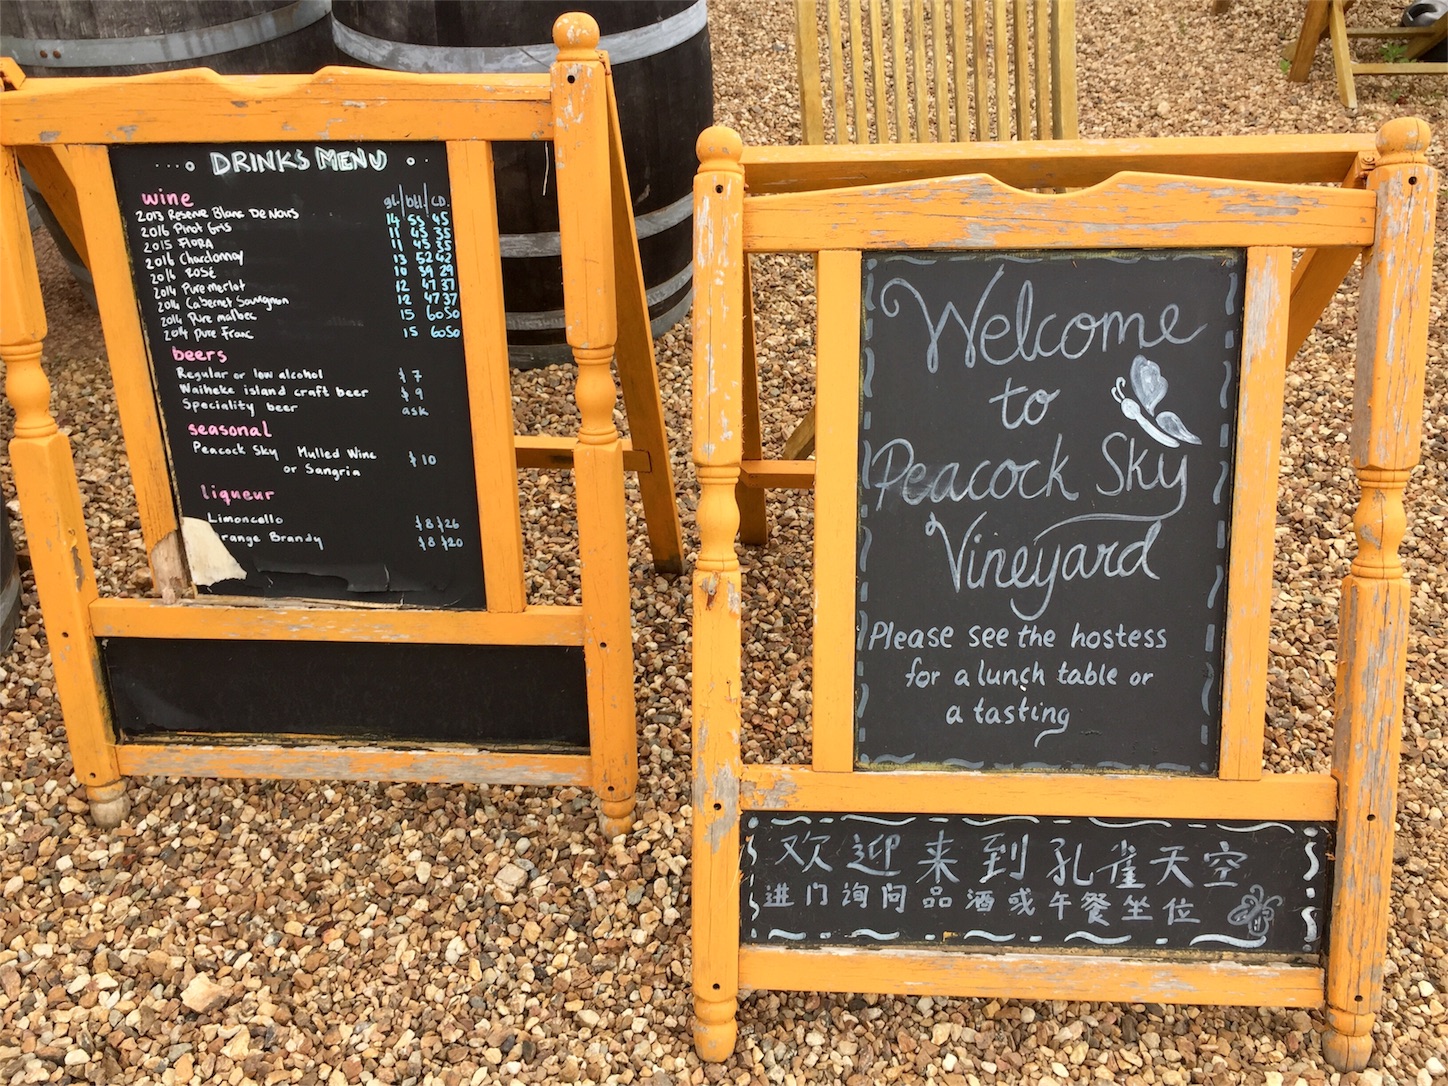 DRINKS MENU
wine gl. btl CD.
2013 Reserve Blanc De Noirs 14 55 45
2016 Pinot Gris 11 45 35
2015 FLORA 11 45 35
2016 Chardonnay 13 52 42
2016 ROSÉ 10 39 29
2014 Pure merlot 12 47 37
2014 Cabernet Sauvignon 12 47 37
2014 Pure malbec 15 60 50
2014 Pure Franc 15 60 50
beers
Regular or low alcohol $7
Waiheke island craft beer $9
Speciality beer ask
seasonal
Peacock Sky Mulled Wine $10
or Sangria
liqueur
Limoncello $8 $26
range Brandy $8 $20
Welcome
to
Peacock Sky
Vineyard
Please see the hostess
for a lunch table or
a tasting
欢迎来到孔雀天空
进门询问品酒或午餐坐位